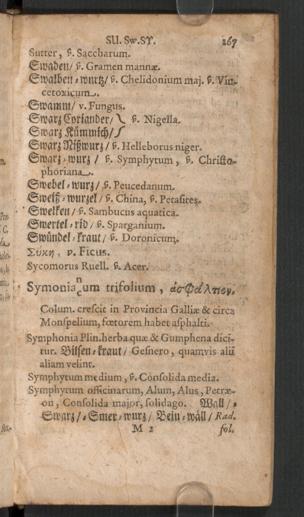 SU. Sw. SY. 267
Sutter, v. Saccharum.
Swaden/ v. Gramen mannæ.
Swalben-wurtz/ v. Chelidonium maj. v. Vin-
cetoxicum.
Swamm/ v. Fungus.
Swartz Coriander/ } v. Nigella.
Swartz Kümmich/
Swartz Nißwurtz/ v. Helleborus niger.
Swartz-wurtz / v. Symphytum, v. Christo-
phoriana.
Swebel-wurtz/ v. Peucedanum.
Sweiß-wurzel v. China, v. Petasites.
Swelken/ v. Sambucus aquatica.
Swertel-rid/ v. Sparganium.
Swündel-kraut/ v. Doronicum.
Συκῆ, v. Ficus.
Sycomorus Ruell. v. Acer.
Symoniacum trifolium, ἀσφάλτιον,
n
Colum. crescit in Provincia Galliæ & circa
Monspelium, fœtorem habet asphalti.
Symphonia Plin. herba quæ & Gumphena dici-
tur. Bilsen-kraut/ Gesnero, quamvis alii
aliam velint.
Symphytum medium, v. Consolida media.
Symphytum officinarum, Alum, Alus, Petræ-
on, Consolida major, solidago. Wall/-
Swarz/-Smer-wurz/ Bein-wäll/ Rad.
M 2 fol.